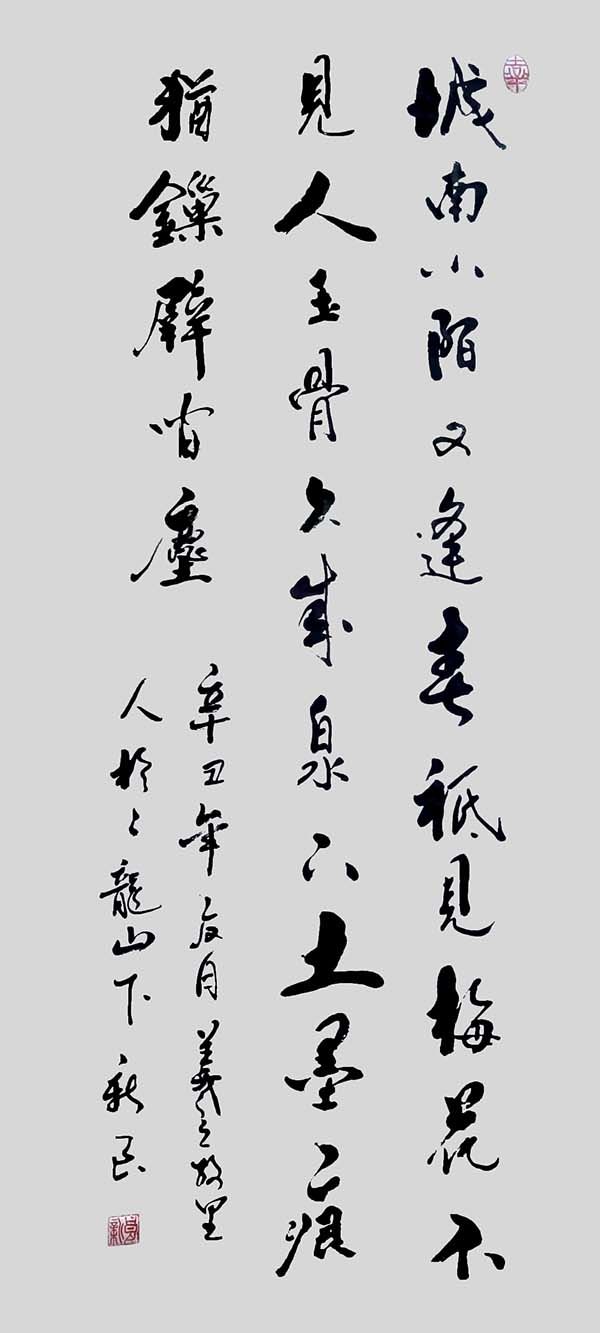 城南小陌又逢春祗見梅花不
見人玉骨久成泉下土墨痕
猶鏁壁間塵
辛丑年月羲之故里
人於龍山下新民